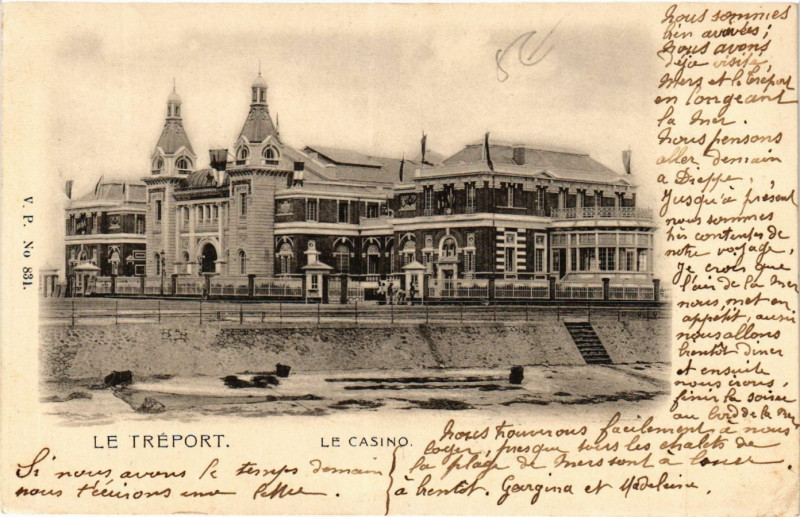 Nous sommes
bien arrivées ;
nous avons
déjà visité,
Mers et le Tréport
en longeant
la mer.
Nous pensons
aller demain
à Dieppe,
Jusqu'à présent
nous sommes
très contentes de
notre voyage,
Je crois que
l'air de la mer
nous met en
appétit, aussi
nous allons
bientôt diner
et ensuite
nous irons,
finir la soirée
au bord de la mer
V. P. No 831.
LE TRÉPORT.
LE CASINO.
Nous trouverons facilement à nous
loger, presque tous les chalets de
la plage de Mers sont à louer.
à bientôt. Georgina et Madeleine.
Si nous avons le temps demain
nous t'écrirons une lettre.